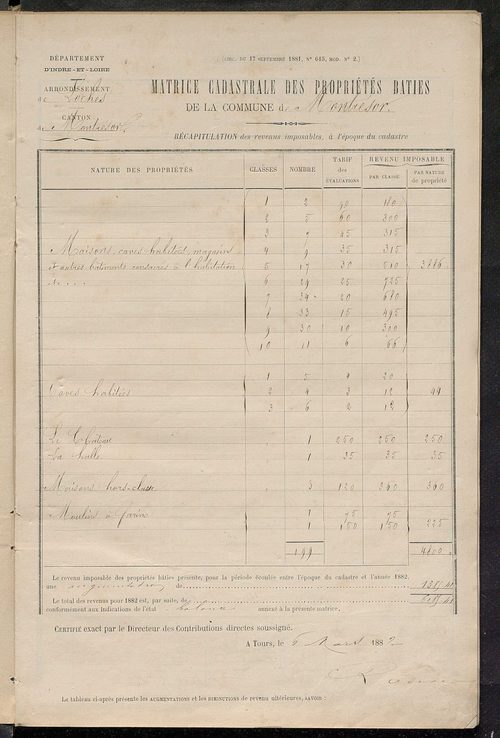 DÉPARTEMENT
D'INDRE-ET-LOIRE
ARRONDISSEMENT
de Loches
CANTON
de Montrésor
(CIRC. DU 17 SEPTEMBRE 1881, N° 645, MOD. N° 2.)
MATRICE CADASTRALE DES PROPRIÉTÉS BATIES
DE LA COMMUNE de Montrésor
RÉCAPITULATION des revenus imposables, à l'époque du cadastre
NATURE DES PROPRIÉTÉS CLASSES NOMBRE TARIF des ÉVALUATIONS REVENU IMPOSABLE PAR CLASSE PAR NATURE de propriété
1 2 90 180
2 5 60 300
3 7 45 315
Maisons, caves habitées, magasins 4 9 35 315
& autres bâtiments consacrés à l'habitation 5 17 30 510
6 29 25 725
7 34 20 680
8 33 15 495
9 30 10 300
10 11 6 66
1 5 4 20
Caves habitées 2 4 3 12 44
3 6 2 12
Le Château 1 250 250 250
La halle 1 35 35 35
Maisons hors classe 3 120 360 360
Moulins à farine 1 75 75
1 150 150 225
199 4800
Le revenu imposable des propriétés bâties présente, pour la période écoulée entre l'époque du cadastre et l'année 1882,
une augmentation de
Le total des revenus pour 1882 est, par suite, de
conformément aux indications de l'état annexé à la présente matrice.
CERTIFIÉ exact par le Directeur des Contributions directes soussigné.
A Tours, le 6 Mars 1882
Le tableau ci-après présente les AUGMENTATIONS et les DIMINUTIONS de revenu ultérieures, SAVOIR :